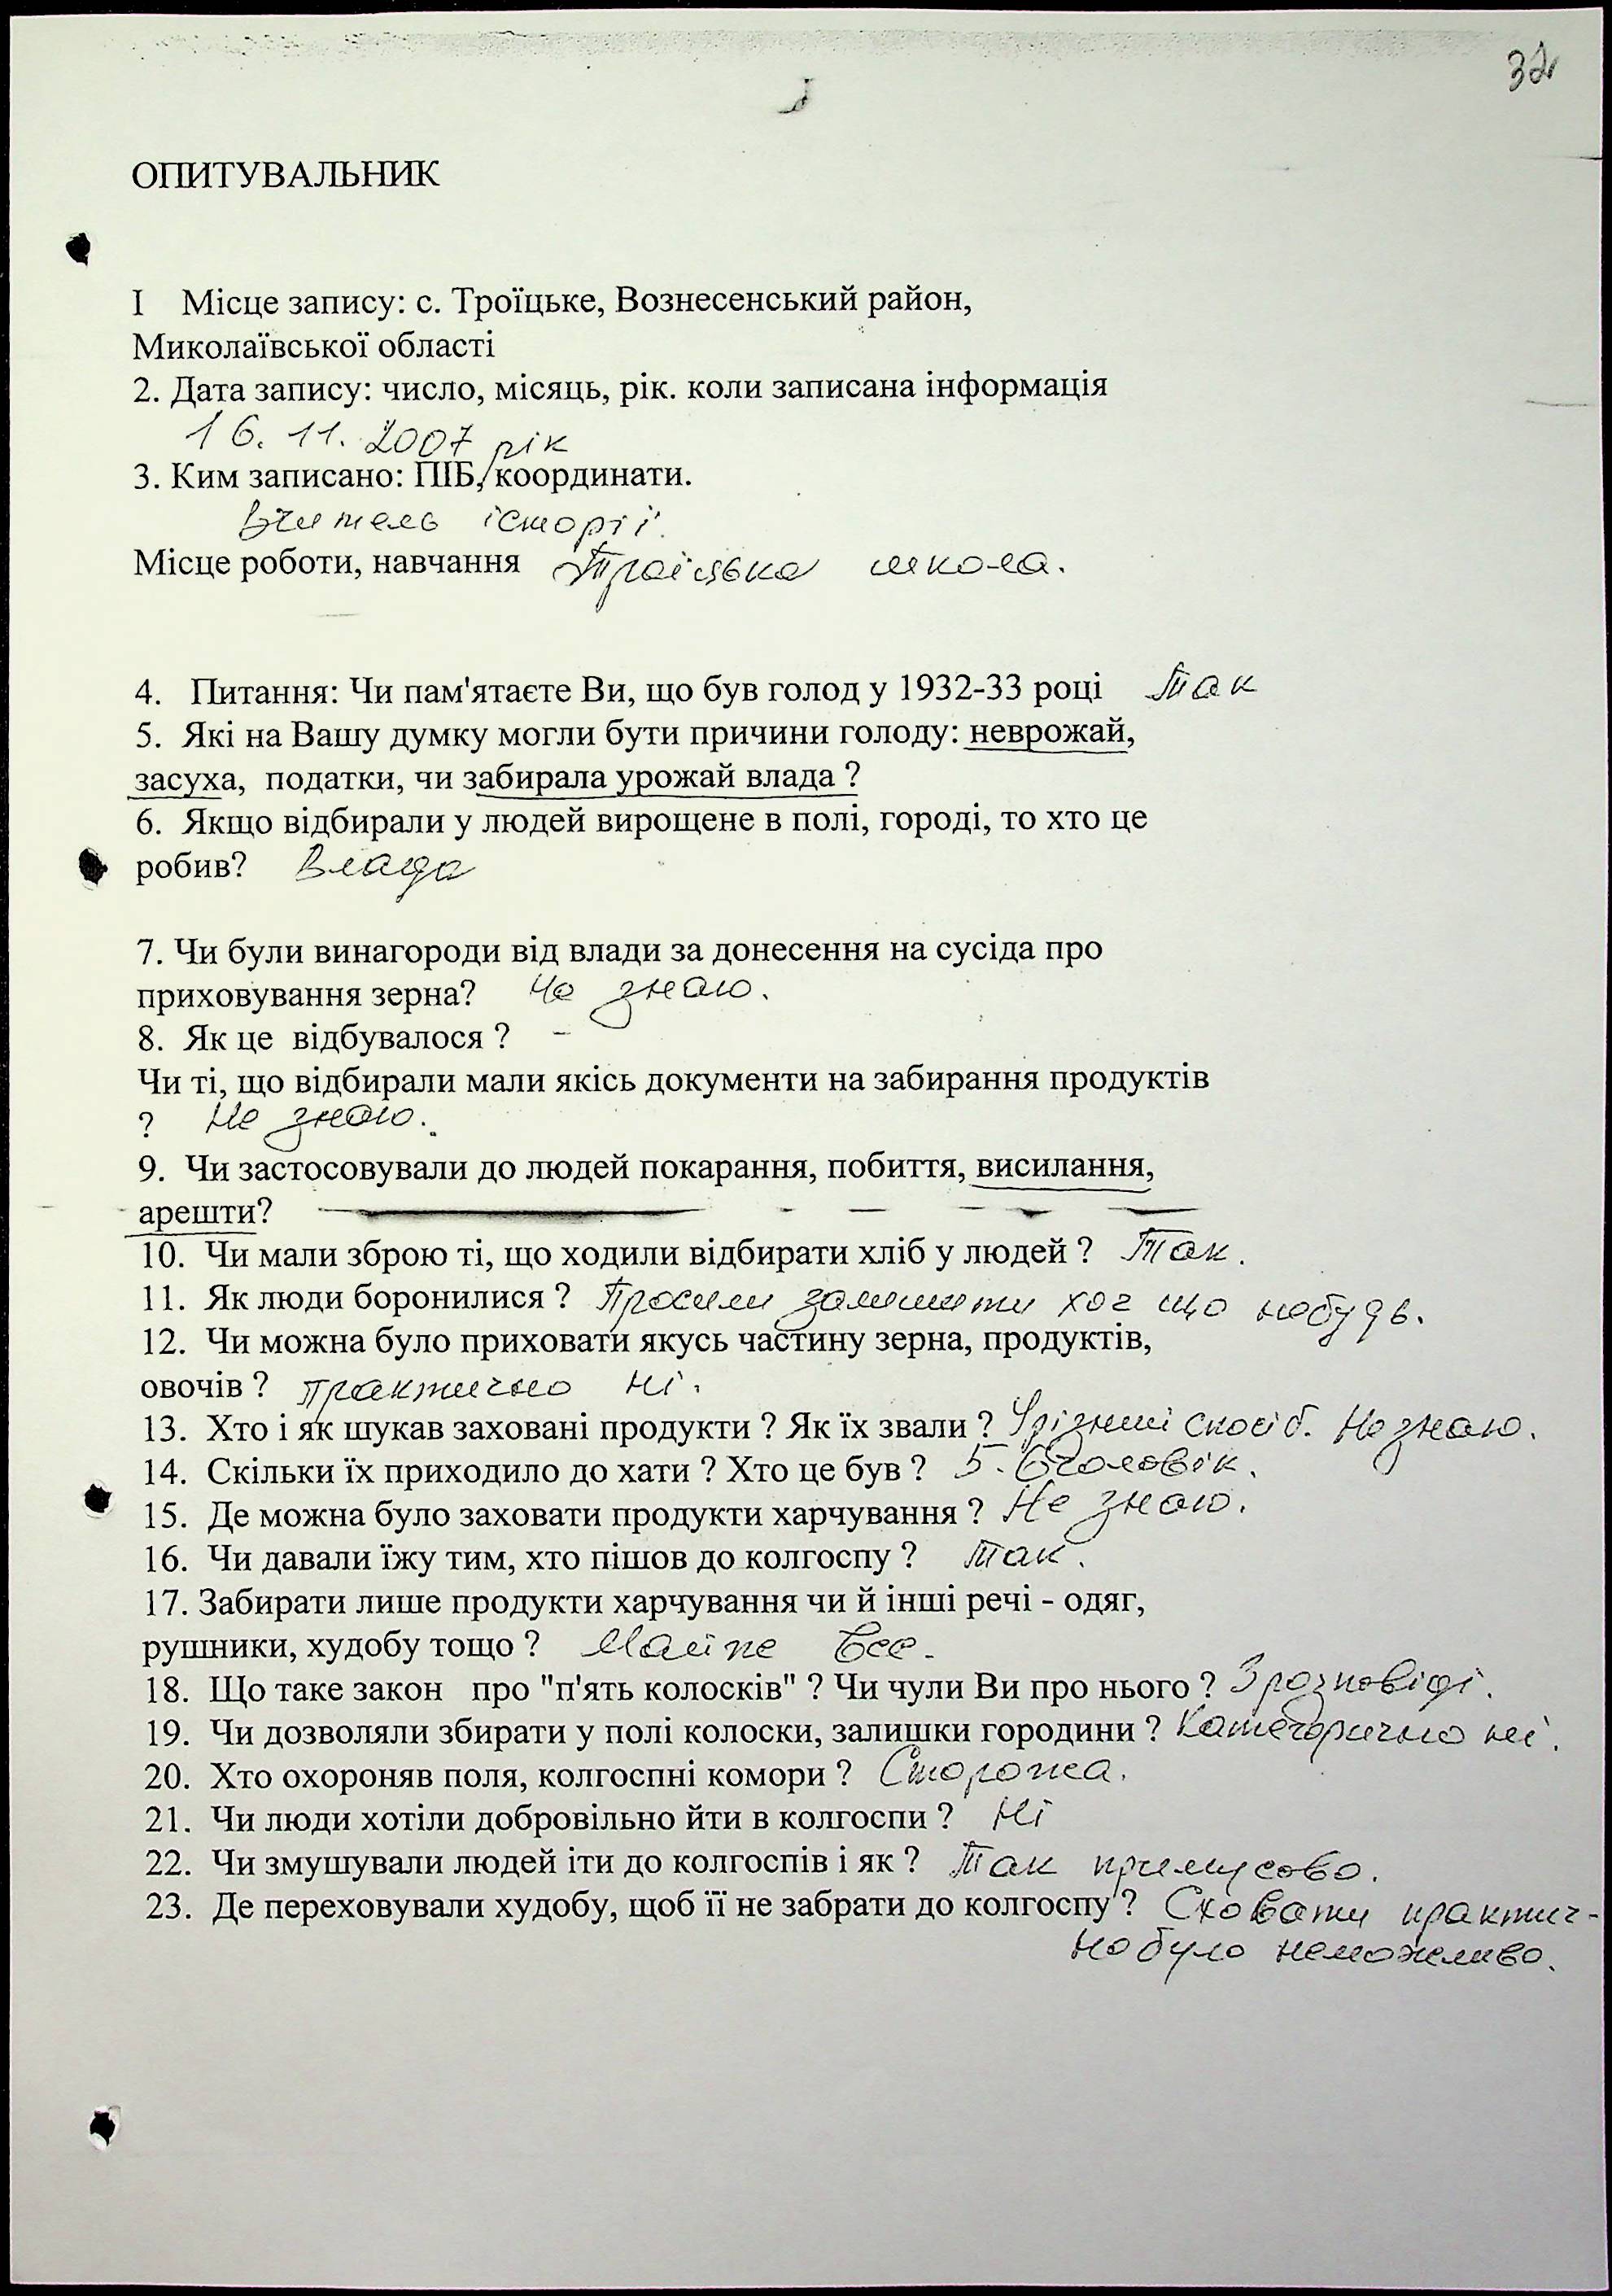 32
ОПИТУВАЛЬНИК
I Місце запису: с. Троїцьке, Вознесенський район,
Миколаївської області
2. Дата запису: число, місяць, рік. коли записана інформація
16. 11. 2007 рік
3. Ким записано: ПІБ, координати.
Вчитель історії.
Місце роботи, навчання Троїцька школа.
4. Питання: Чи пам'ятаєте Ви, що був голод у 1932-33 році Так
5. Які на Вашу думку могли бути причини голоду: неврожай,
засуха, податки, чи забирала урожай влада ?
6. Якщо відбирали у людей вирощене в полі, городі, то хто це
робив? Влада
7. Чи були винагороди від влади за донесення на сусіда про
приховування зерна? Не знаю.
8. Як це відбувалося ? -
Чи ті, що відбирали мали якісь документи на забирання продуктів
? Не знаю.
9. Чи застосовували до людей покарання, побиття, висилання,
арешти?
10. Чи мали зброю ті, що ходили відбирати хліб у людей ? Так.
11. Як люди боронилися ? Просили залишити хоч що небудь.
12. Чи можна було приховати якусь частину зерна, продуктів,
овочів ? практично ні.
13. Хто і як шукав заховані продукти ? Як їх звали ? У різний спосіб. Не знаю.
14. Скільки їх приходило до хати ? Хто це був ? 5-6 чоловік.
15. Де можна було заховати продукти харчування ? Не знаю.
16. Чи давали їжу тим, хто пішов до колгоспу ? Так.
17. Забирати лише продукти харчування чи й інші речі - одяг,
рушники, худобу тощо ? Майже все.
18. Що таке закон про "п'ять колосків" ? Чи чули Ви про нього ? З розповіді.
19. Чи дозволяли збирати у полі колоски, залишки городини ? Категорично ні.
20. Хто охороняв поля, колгоспні комори ? Сторожа.
21. Чи люди хотіли добровільно йти в колгоспи ? Ні
22. Чи змушували людей іти до колгоспів і як ? Так примусово.
23. Де переховували худобу, щоб її не забрати до колгоспу ? Сховати практич-
но було неможливо.